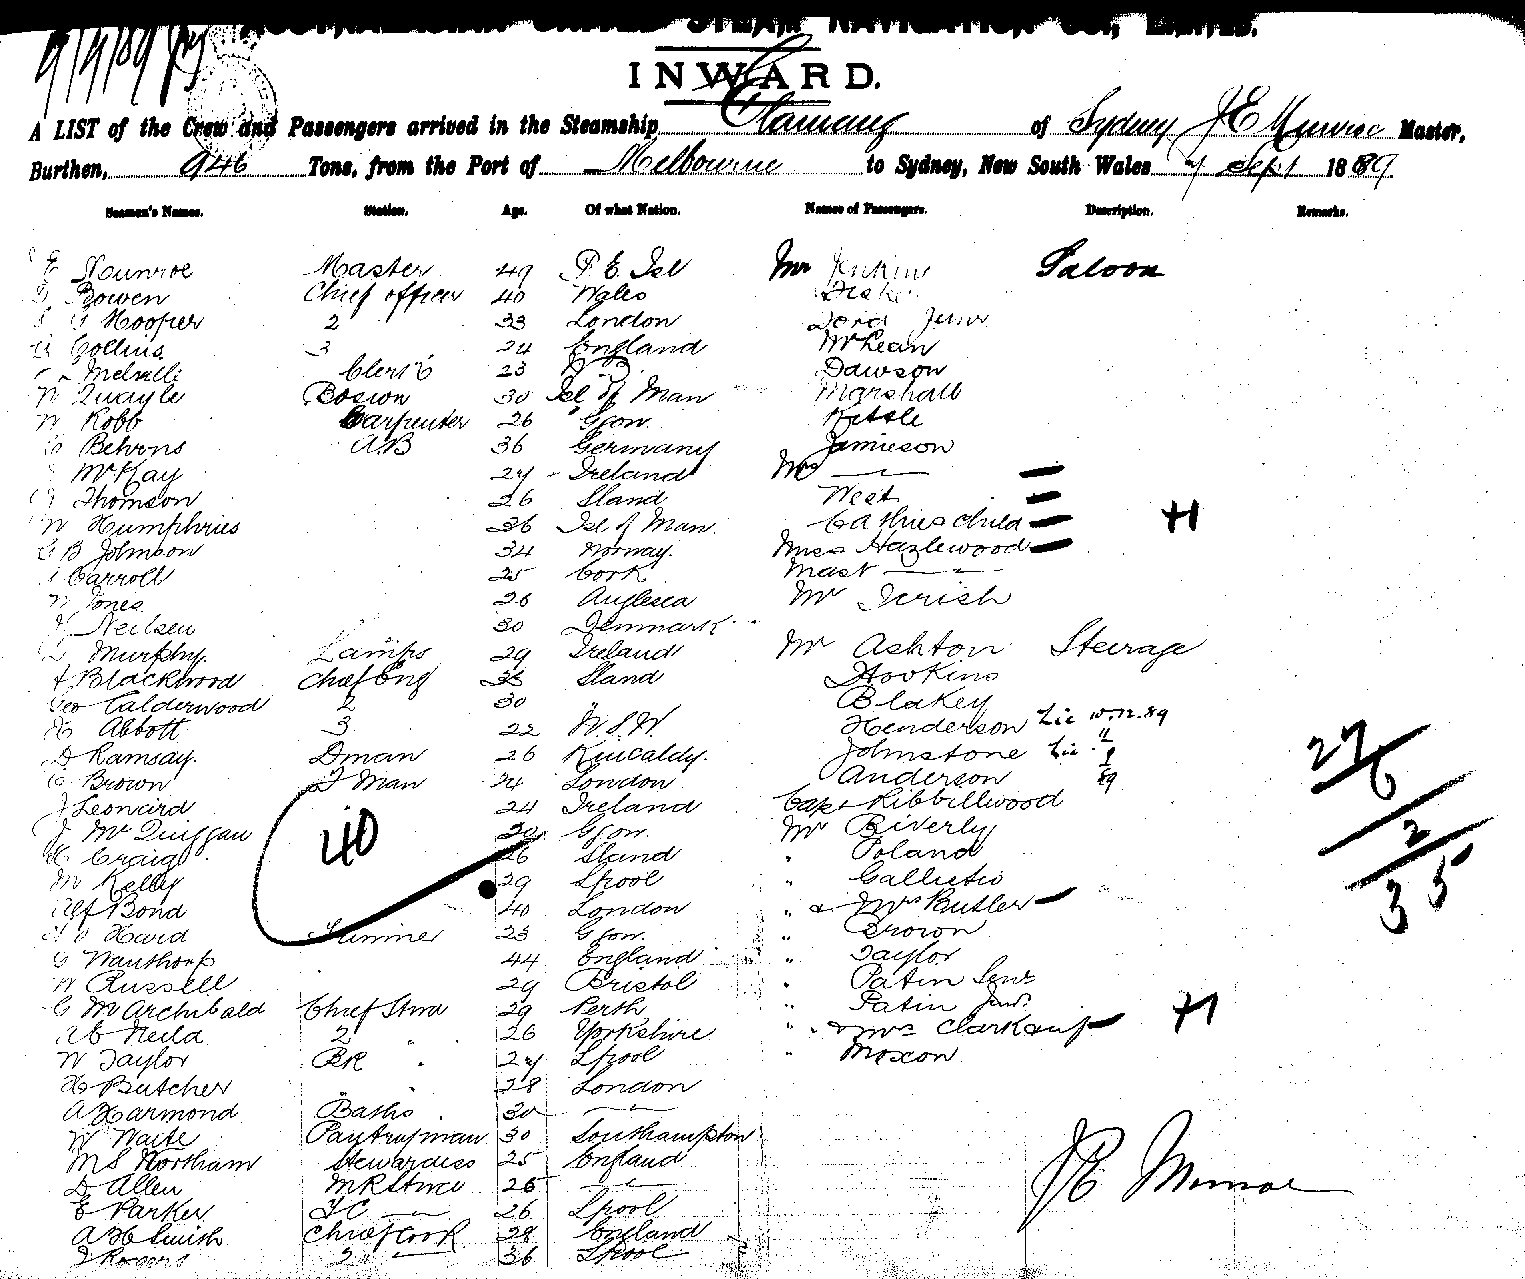 STEAM NAVIGATION CO., LIMITED.
9/9/89
INWARD.
A LIST of the Crew and Passengers arrived in the Steamship of Sydney J E Munroe Master,
Burthen, 946 Tons, from the Port of Melbourne to Sydney, New South Wales 7 Sept 1889.
Seamen's Names. Station. Age. Of what Nation. Names of Passengers. Description. Remarks.
E Munroe Master 49 P. E. Isl Mr Saloon
Bowen Chief officer 40 Wales
G Hooper 2 33 London
Collins 3 24 England McLean
Melville Clerk 23 N B Dawson
W Quayle Boson 30 Isl of Man Marshall
W Robb Carpenter 26 Ggow Kettle
Behrens AB 36 Germany Jamieson
McKay 24 Ireland Mrs —
Thomson 26 Sland West
W Humphries 36 Isl of Man Cathies child H
G B Johnson 34 Norway Miss Hazlewood
Carroll 25 Cork Mast —
W Jones 26 Anglesea Mr
Neilsen 30 Denmark
Murphy Lamps 29 Ireland Mr Ashton Steerage
Blackwood Chief Eng 36 Sland Hopkins
Geo Calderwood 2 30 " Blakey
H Abbott 3 22 N.S.W. Henderson Lic 10.12.89
D Ramsay D man 26 Johnstone Lic 11/9/89
C Brown F Man 24 London Anderson
J Leonard 24 Ireland Capt Ribbillwood
J McQuiggan 40 Ggow Mr Beverly
Craig 26 Sland " Poland
M Kelly 29 Lpool "
Alf Bond 40 London " & Mrs Butler
Hard Trimmer 23 Ggow " Brown
G 44 England " Taylor
W Russell 29 Bristol " Patin Senr
G McArchibald Chief Stwd 29 Perth " Patin Junr
A C Neild 2 " 26 Yorkshire " & Mrs H
W Taylor BK " 24 Lpool " Moxon
H Butcher " " 28 London
A Harmond Baths 30 —
W Waite Pantryman 30 Southampton
Mrs Northam Stewardess 25 England
D Allen 25 —
E Parker 26 Lpool
A H Smith Chief Cook 28 England
J Rogers 2 36 Lpool
27
6
2
35
J E Munroe